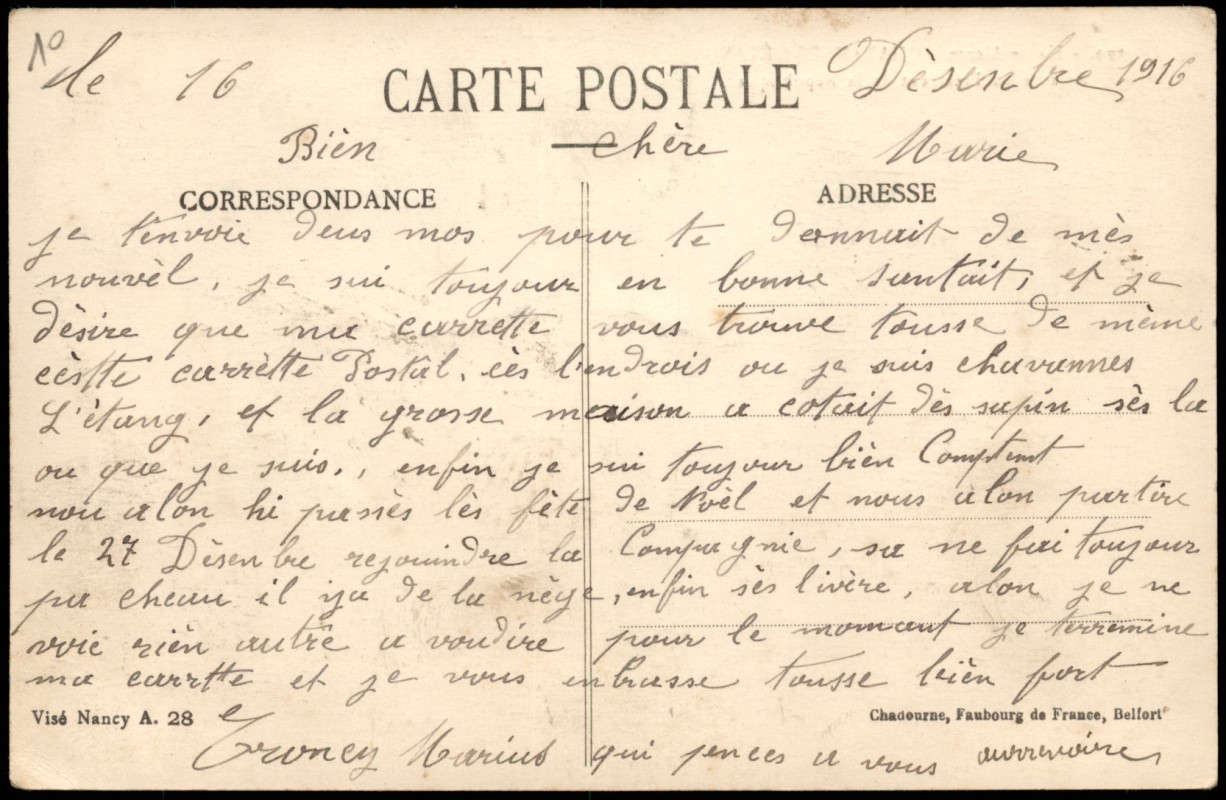 1°
le 16 CARTE POSTALE Dèsenbre 1916
Bièn chère Marie
CORRESPONDANCE ADRESSE
je t'envoie deus mos pour te donnait de mès
nouvèl, je sui toujour en bonne santait, et je
dèsire que ma carrette vous trouve tousse de mème
cèstte carrètte Postal. cès l'endrois ou je suis chavannes
L'ètang, et la grosse maison a cotait dès sapin sès la
ou que je suis., enfin je sui toujour bièn Comptent
nou alon hi passès lès fète de Nöèl et nous alon partire
le 27 Dèsenbre rejouindre la Compagnie, sa ne fai toujour
pa cheau il ya de la nège, enfin sès livère, alon je ne
voie rièn autre a voudire pour le momant je terremine
ma carrtte et je vous enbrasse tousse bièn fort
Visé Nancy A. 28 Chadourne, Faubourg de France, Belfort
Troncy Marius qui pences a vous aurrevoire